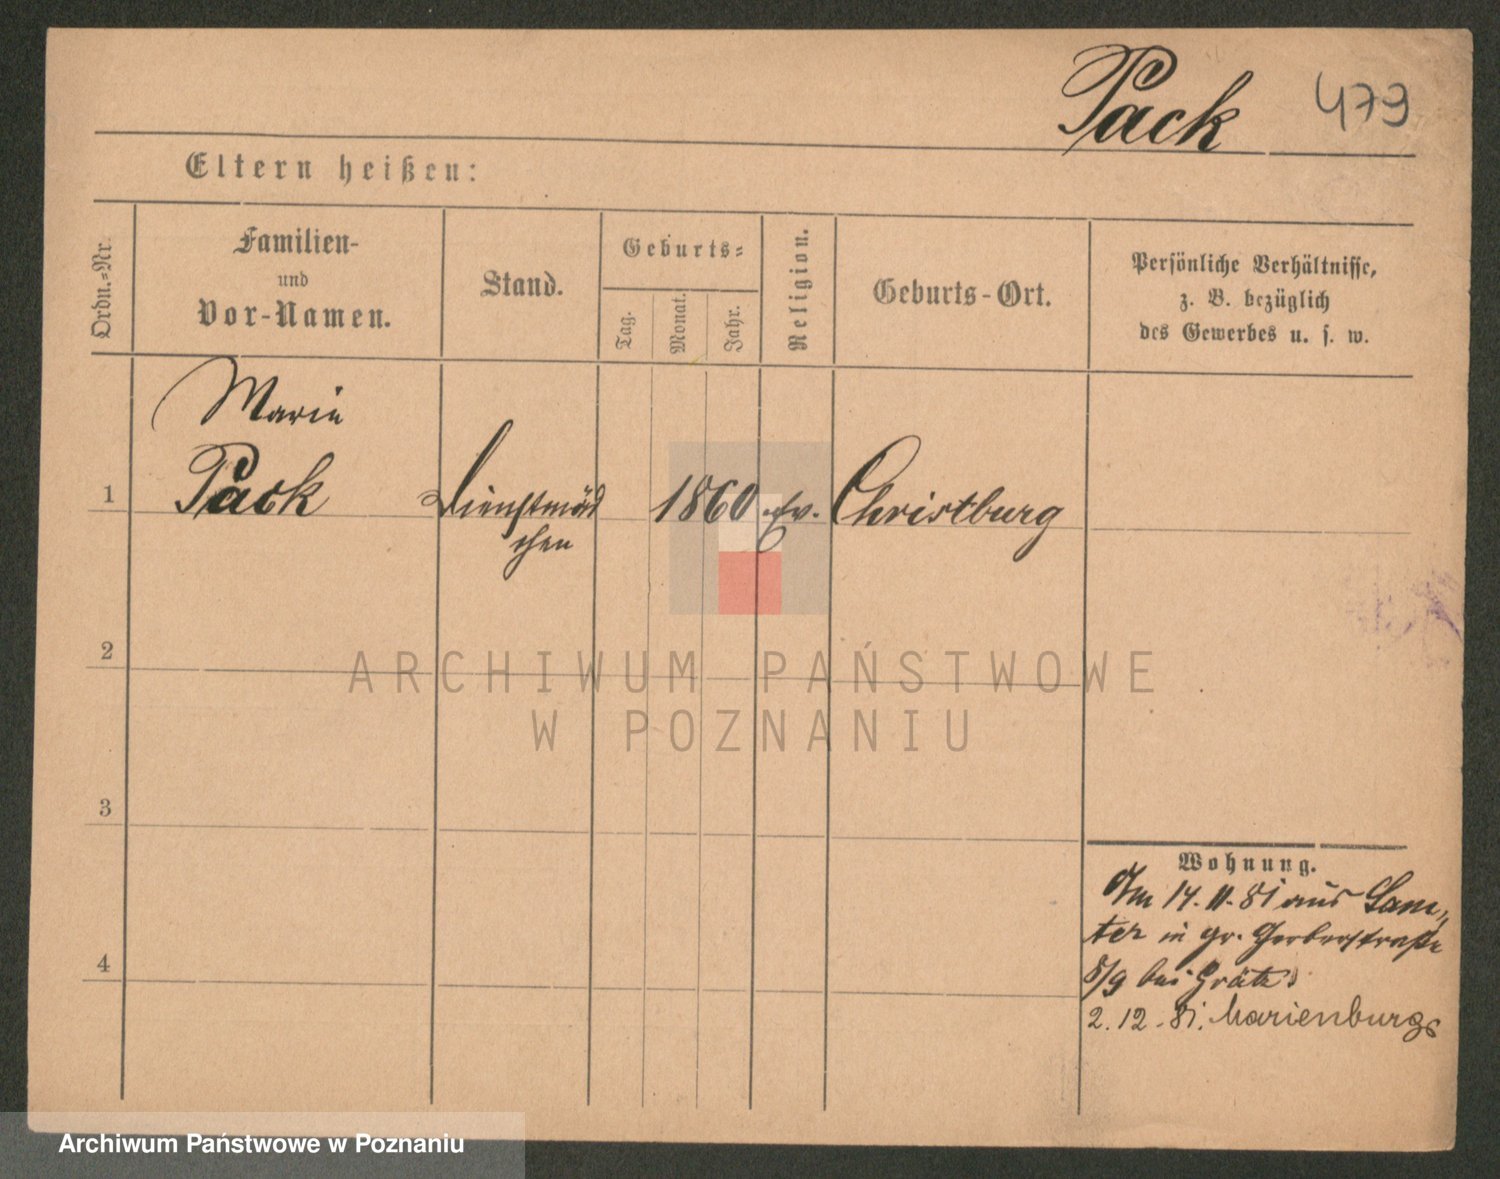 Pack 479
Eltern heißen:
Ordn.=Nr.
Familien-
und
Vor-Namen.
Stand.
Geburts=
Tag.
Monat.
Jahr.
Religion.
Geburts-Ort.
Persönliche Verhältnisse,
z. B. bezüglich
des Gewerbes u. s. w.
Marie
1 Pack Dienstmäd 1860 ev. Christburg
chen
2
ARCHIWUM PAŃSTWOWE
W POZNANIU
3
Wohnung.
Am 14. 11. 81 aus Sam„
ter in gr. Gerberstraße
8/9 bei Grätz
4
2. 12. 81. Marienburg
Archiwum Państwowe w Poznaniu